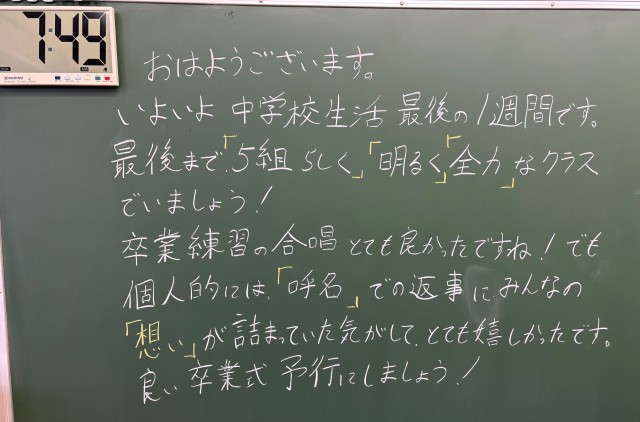 7:49
おはようございます。
いよいよ 中学校生活 最後の1週間です。
最後まで「5組らしく」「明るく」「全力」なクラス
でいましょう!
卒業練習の合唱とても良かったですね!でも
個人的には、「呼名」での返事にみんなの
「想い」が詰まっていた気がして、とても嬉しかったです。
良い卒業式予行にしましょう!